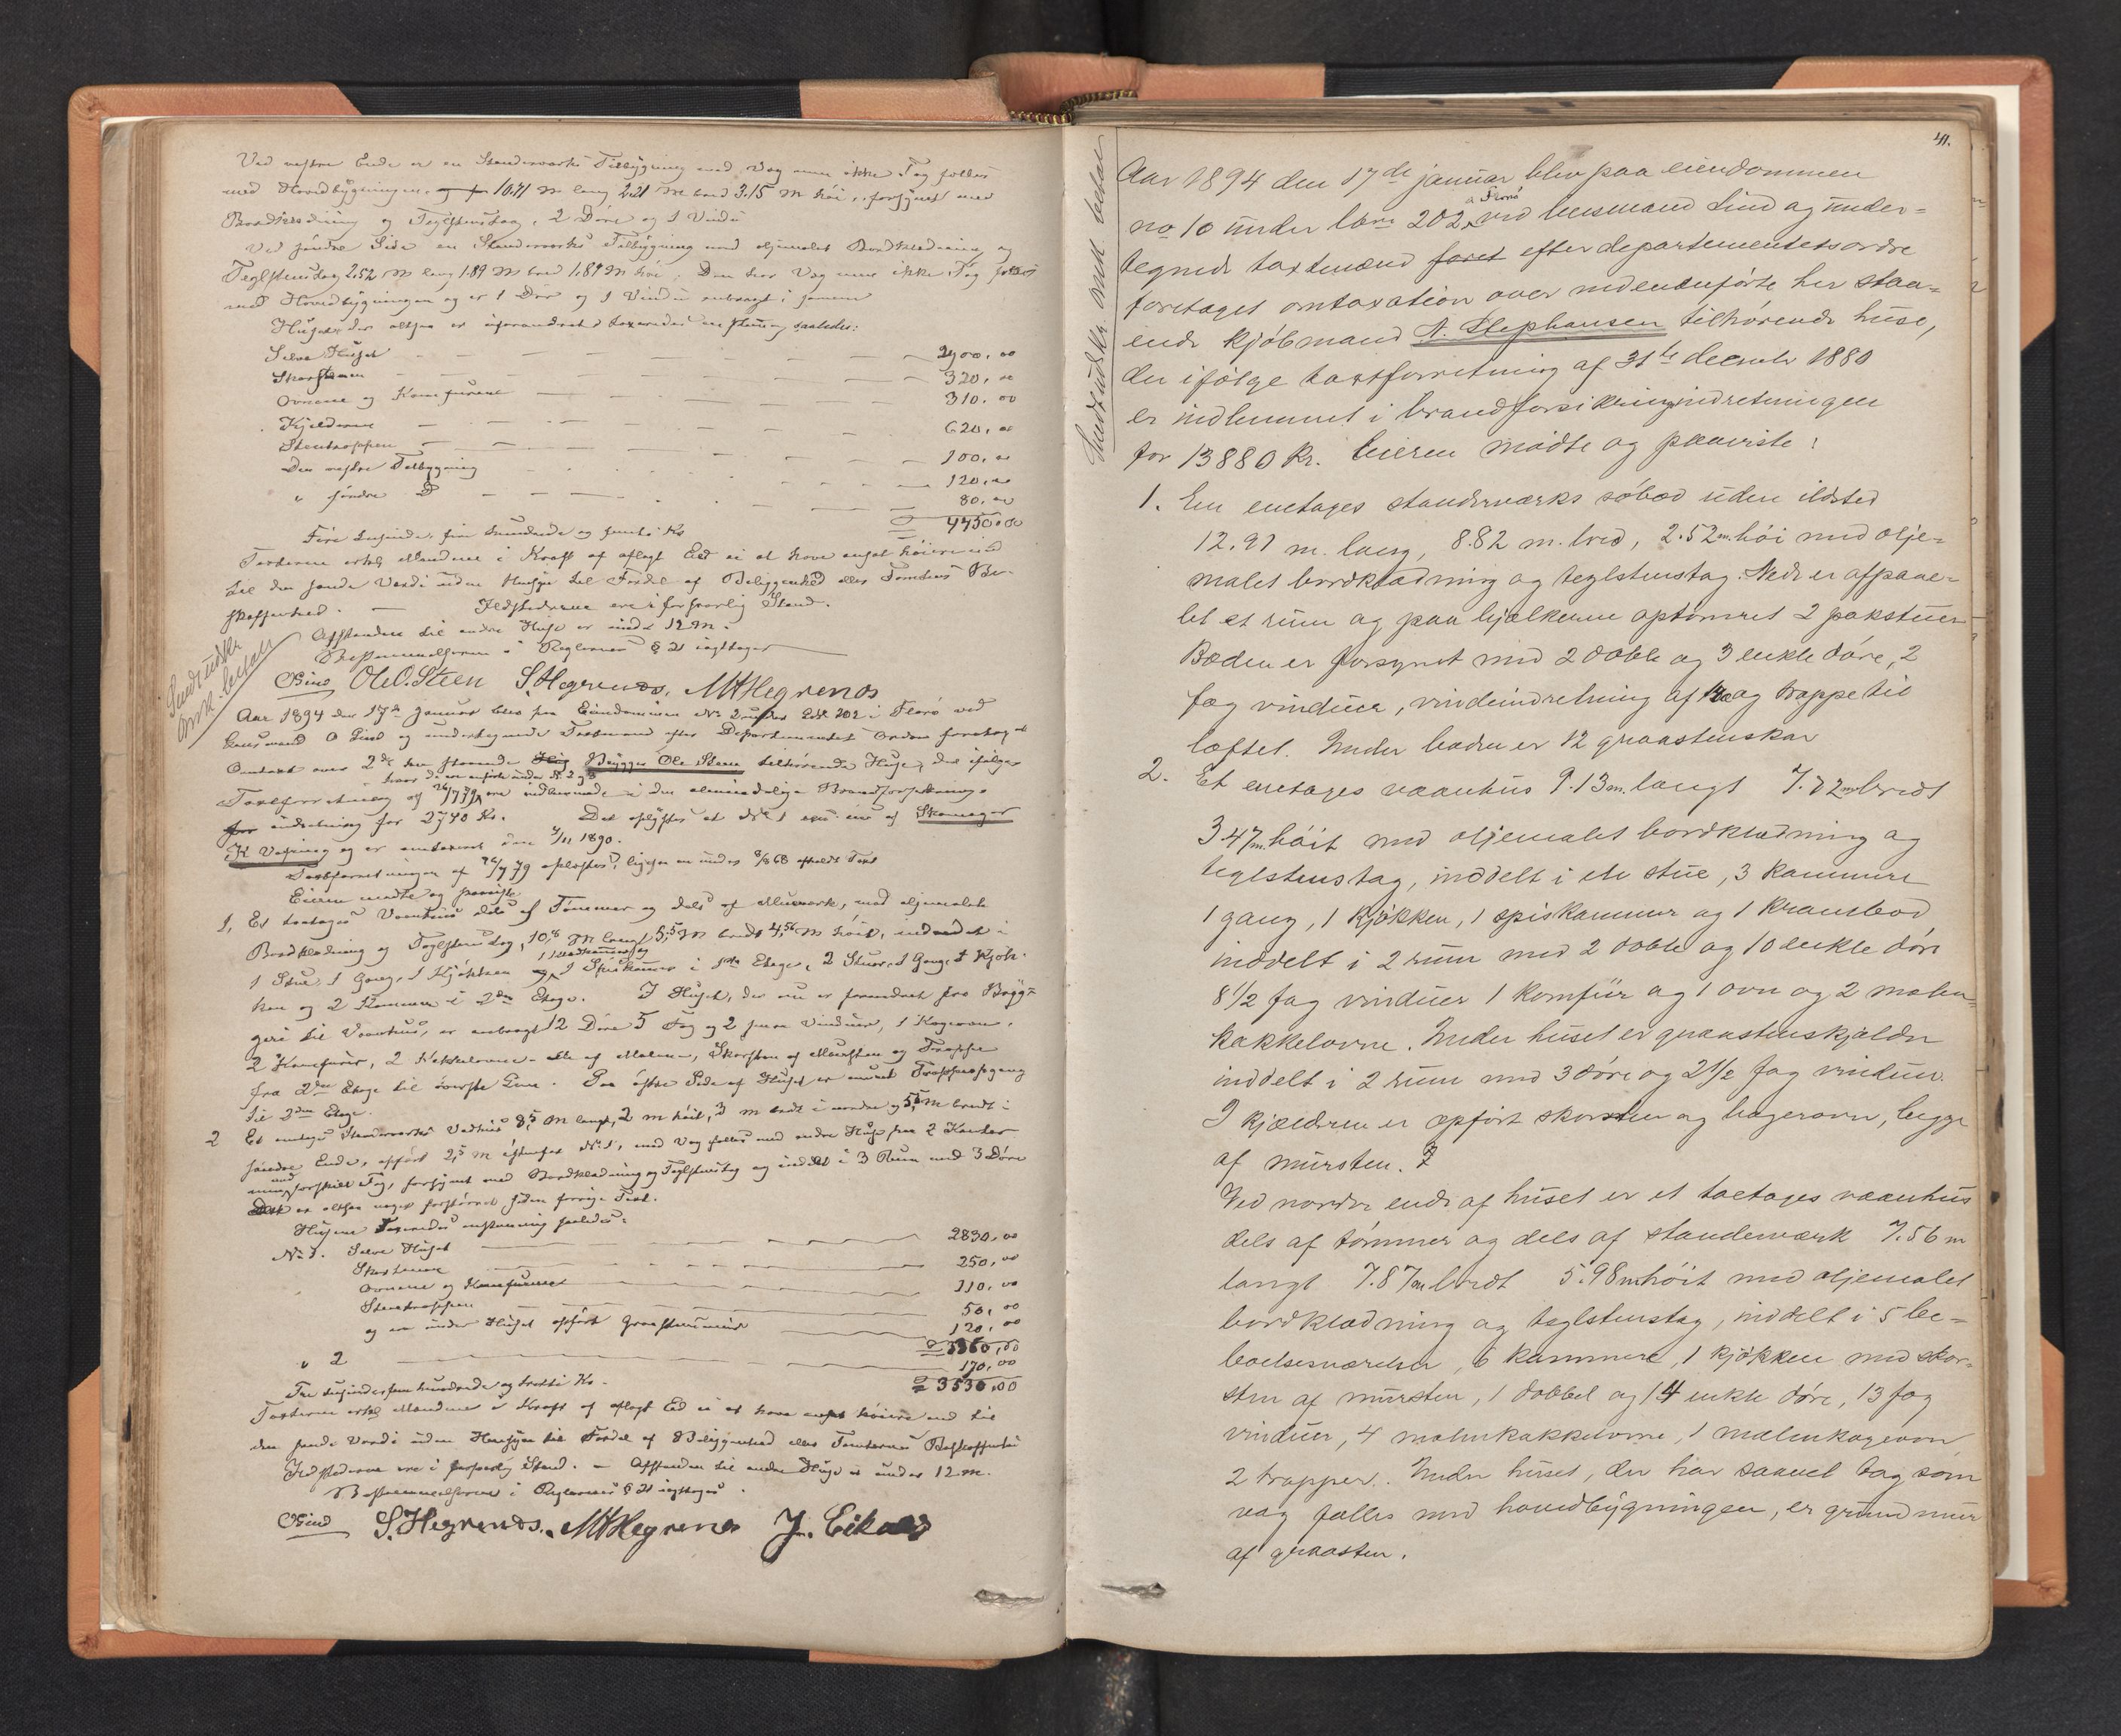 Ved vestre Ende er en Standerværks Tilbygning med Væg men ikke Tag fælles
med Hovedbygningen. 10.71 m lang 2.21 m bred 3.15 m høi, forsynet med
Bordklædning og Teglstenstag, 2 Døre og 1 Vindu
Ved søndre Side en Standerværks Tilbygning med oljemalet Bordklædning og
Teglstenstag 2.52 m lang 1.89 m bred 1.89 m høi. Den har Væg men ikke Tag fælles
med Hovedbygningen og er 1 Dør og 1 Vindu anbragt i samme
Huset der altsaa er uforandret taxeredes saaledes:
Selve Huset 2900,00
Skorstenen 320,00
Ovnene og Komfurene 310.00
Kjelderne 620,00
Stentrappen 100,00
Den vestre Tilbygning 120,00
" søndre D 80,00
4450,00
Fire tusinde, fire hundrede og femti Kr
Taxterne erklærede Mændene i Kraft af aflagt Ed ei at have ansat høiere end
til den sande Værdi uden Hensyn til Fordel af Beliggenhed eller Tomtens Be-
skaffenhed. Ildstederne ere i forsvarlig Stand.
Afstanden til andre Huse er under 12 m.
Bestemmelserne i Reglernes § 21 iagttaget
Lind Ole O. Steen S. Hegrenes, M H Hegrenes
Sendt udskr.
omk. betalt
Aar 1894 den 17de Januar blev paa Eiendommen No 2 under Lbr 202 i Florø ved
Lensmand O Lind og undertegnede Taxtmænd efter Departementets Ordre foretaget
Omtaxt over 2de her staaende Brygger Ole Steen tilhørende Huse, der ifølge
hvor de ere anførte under No 2 og 3
Taxtforretning af 26/7 79 ere indlemmede i den almindelige Brandforsikrings-
for indretning for 2740 Kr. Det oplystes at No 1 eies af Skomager
K. og er omtaxeret den 4/11 1890.
Taxtforretningen af 26/7 79 oplystes, ligesaa en under 8/8 68 afholdt Taxt
Eieren mødte og paaviste
1, Et toetages Vaanhus dels af Tømmer og dels af Murværk, med oljemalet
Bordklædning og Teglstenstag, 10,8 m langt 5,5 m bredt 4,56 m høit, inddelt i
1 Stue, 1 Gang, 1 Kjøkken og 1 Spiskammer i 1ste Etage, 2 Stuer, 1 Gang, 1 Kjøk-
ken og 2 Kammer i 2den Etage. I Huset, der nu er forandret fra Brygg-
geri til Vaanhus, er anbragt 12 Døre 5 Fag og 2 smaa Vinduer, 1 Kogeovn,
2 Komfurer, 2 Kakkelovne alle af Malm, Skorsten af Mursten og Trappe
fra 2den Etage til øverste Lem. Paa østre Side af Huset er muret Trappeopgang
til 2den Etage.
2 Et enetages Standerværks Vedhus 8,5 m langt, 2 m høit, 3 m bredt i nordre og 5,5 m bredt i
søndre Ende, opført 2,5 m østenfor No 1, med Væg fælles med andre Huse paa 2 Kanter
men forskilt Tag, forsynet med Bordklædning og Teglstenstag og inddelt i 3 Rum med 3 Døre
er altsaa noget forstørret siden forrige Taxt.
Husene Taxeredes enstemmig saaledes:
No 1. Selve Huset 2830,00
Skorstenene 250,00
Ovnene og Komfurene 110,00
Stentrappen 50,00
og en under Huset opført Graastensmur 120,00
3360,00
" 2 170,00
3530,00
Tre tusinde fem hundrede og tretti Kr.
Taxterne erklærede Mændene i Kraft af aflagt Ed ei at have ansat høiere end til
den sande Værdi uden Hensyn til Fordel af Beliggenhed eller Tomternes Beskaffenhed
Ildstederne ere i forsvarlig Stand. - Afstanden til andre Huse er under 12 m.
Bestemmelserne i Reglernes § 21 iagttaget.
Lind S. Hegrenes. M H Hegrenes J. Eikaas
41.
Sendt udskr. omk. betalt
Aar 1894 den 17de januar blev paa eiendommen
i Florø
no 10 under lbno 202 ved lensmand Lind og under-
tegnede taxtmænd foret efter departementets ordre
foretaget omtaxation over nedenanførte her staa-
ende kjøbmand A. Stephansen tilhørende huse,
der ifølge taxtforretning af 31te decemb 1880
er indlemmet i brandforsikringsindretningen
for 13880 kr. Eieren mødte og paaviste:
1. En enetages standerværks søbod uden ildsted
12.91 m. lang, 8.82 m. bred, 2.52 m. høi med olje-
malet bordklædning og teglstenstag. Nede er afpane-
let et rum og paa bjælkerne optømret 2 pakstuer
Boden er forsynet med 2 doble og 3 enkle døre, 2
fag vinduer, vindeindretning af træ og trappe til
loftet. Under boden er 12 graastenskar
2. Et enetages vaanhus 9.13 m. langt 7.72 m bredt
3.47 m. høit med oljemalet bordklædning og
teglstenstag, inddelt i en stue, 3 kammere
1 gang, 1 kjøkken, 1 spiskammer og 1 krambod
inddelt i 2 rum med 2 doble og 10 enkle døre
8 1/2 fag vinduer 1 komfür og 1 ovn og 2 malm-
kakkelovne. Under huset er graastenskjælder
inddelt i 2 rum med 3 døre og 2 1/2 fag vinduer.
I kjælderen er opført skorsten og bagerovn, begge
af mursten.
Ved nordre ende af huset er et toetages vaanhus
dels af tømmer og dels af standerværk 7.56 m
langt 7.87 m bredt 5.98 m høit med oljemalet
bordklædning og teglstenstag, inddelt i 5 be-
boelsesværelser, 6 kammere, 1 kjøkken med skor-
sten af mursten, 1 dobbel og 14 enkle døre, 13 fag
vinduer, 4 malmkakkelovne, 1 malmkogeovn
2 trapper. Under huset, der har saavel tag som
væg fælles med hovedbygningen, er grundmur
af graasten.